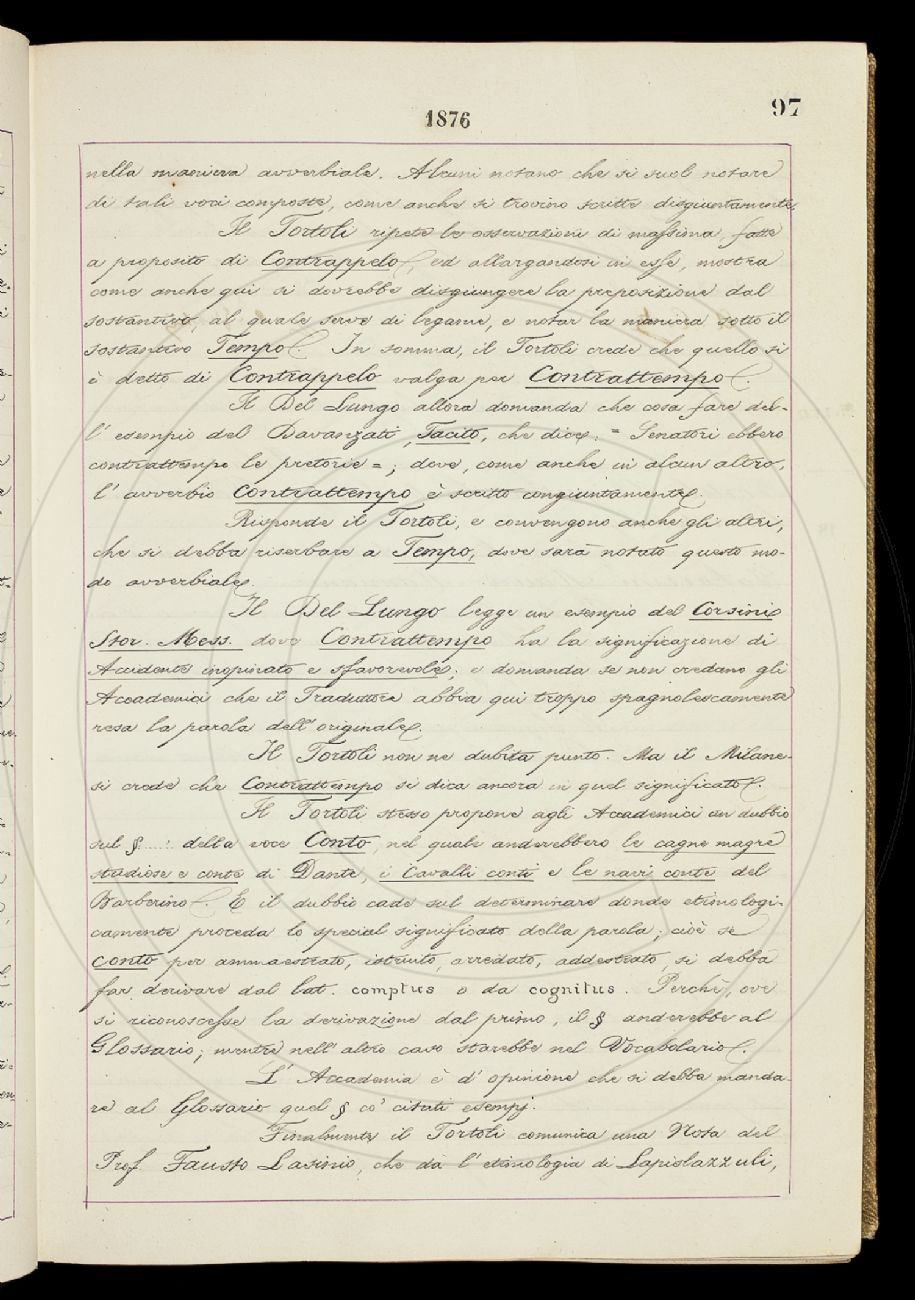 1876
97
nella maniera avverbiale. Alcuni notano che si suol notare
di tali voci composte, come anche si trovino scritte disgiuntamente.
Il Tortoli ripete le osservazioni di massima, fatte
a proposito di Contrappelo, ed allargandosi in esse, mostra
come anche qui si dovrebbe disgiungere la preposizione dal
sostantivo, al quale serve di legame, e notar la maniera sotto il
sostantivo Tempo. In somma, il Tortoli crede che quello si
è detto di Contrappelo valga per Contrattempo.
Il Del Lungo allora domanda che cosa fare del-
l' esempio del Davanzati, Tacito, che dice: = Senatori ebbero
contrattempo le pretorie =; dove, come anche in alcun altro,
l' avverbio Contrattempo è scritto congiuntamente.
Risponde il Tortoli, e convengono anche gli altri,
che si debba riserbare a Tempo, dove sarà notato questo mo-
do avverbiale.
Il Del Lungo legge un esempio del Corsini
Stor. Mess. dove Contrattempo ha la significazione di
Accidente inopinato e sfavorevole; e domanda se non credano gli
Accademici che il Traduttore abbia qui troppo spagnolescamente
resa la parola dell' originale.
Il Tortoli non ne dubita punto. Ma il Milane-
si crede che Contrattempo si dica ancora in quel significato.
Il Tortoli stesso propone agli Accademici un dubbio
sul §.....: della voce Conto, nel quale anderebbero le cagne magre
studiose e conte di Dante, i Cavalli conti e le navi conte del
Barberino. E il dubbio cade sul determinare donde etimologi-
camente proceda lo special significato della parola; cioè se
conto per ammaestrato, istruito, arredato, addestrato, si debba
far derivare dal lat. comptus o da cognitus. Perchè, ove
si riconoscesse la derivazione dal primo, il § anderebbe al
Glossario; mentre nell' altro caso starebbe nel Vocabolario.
L' Accademia è d' opinione che si debba manda-
re al Glossario quel § co' citati esempj.
Finalmente il Tortoli comunica una Nota del
Prof. Fausto Lasinio, che dà l' etimologia di Lapislazzuli,